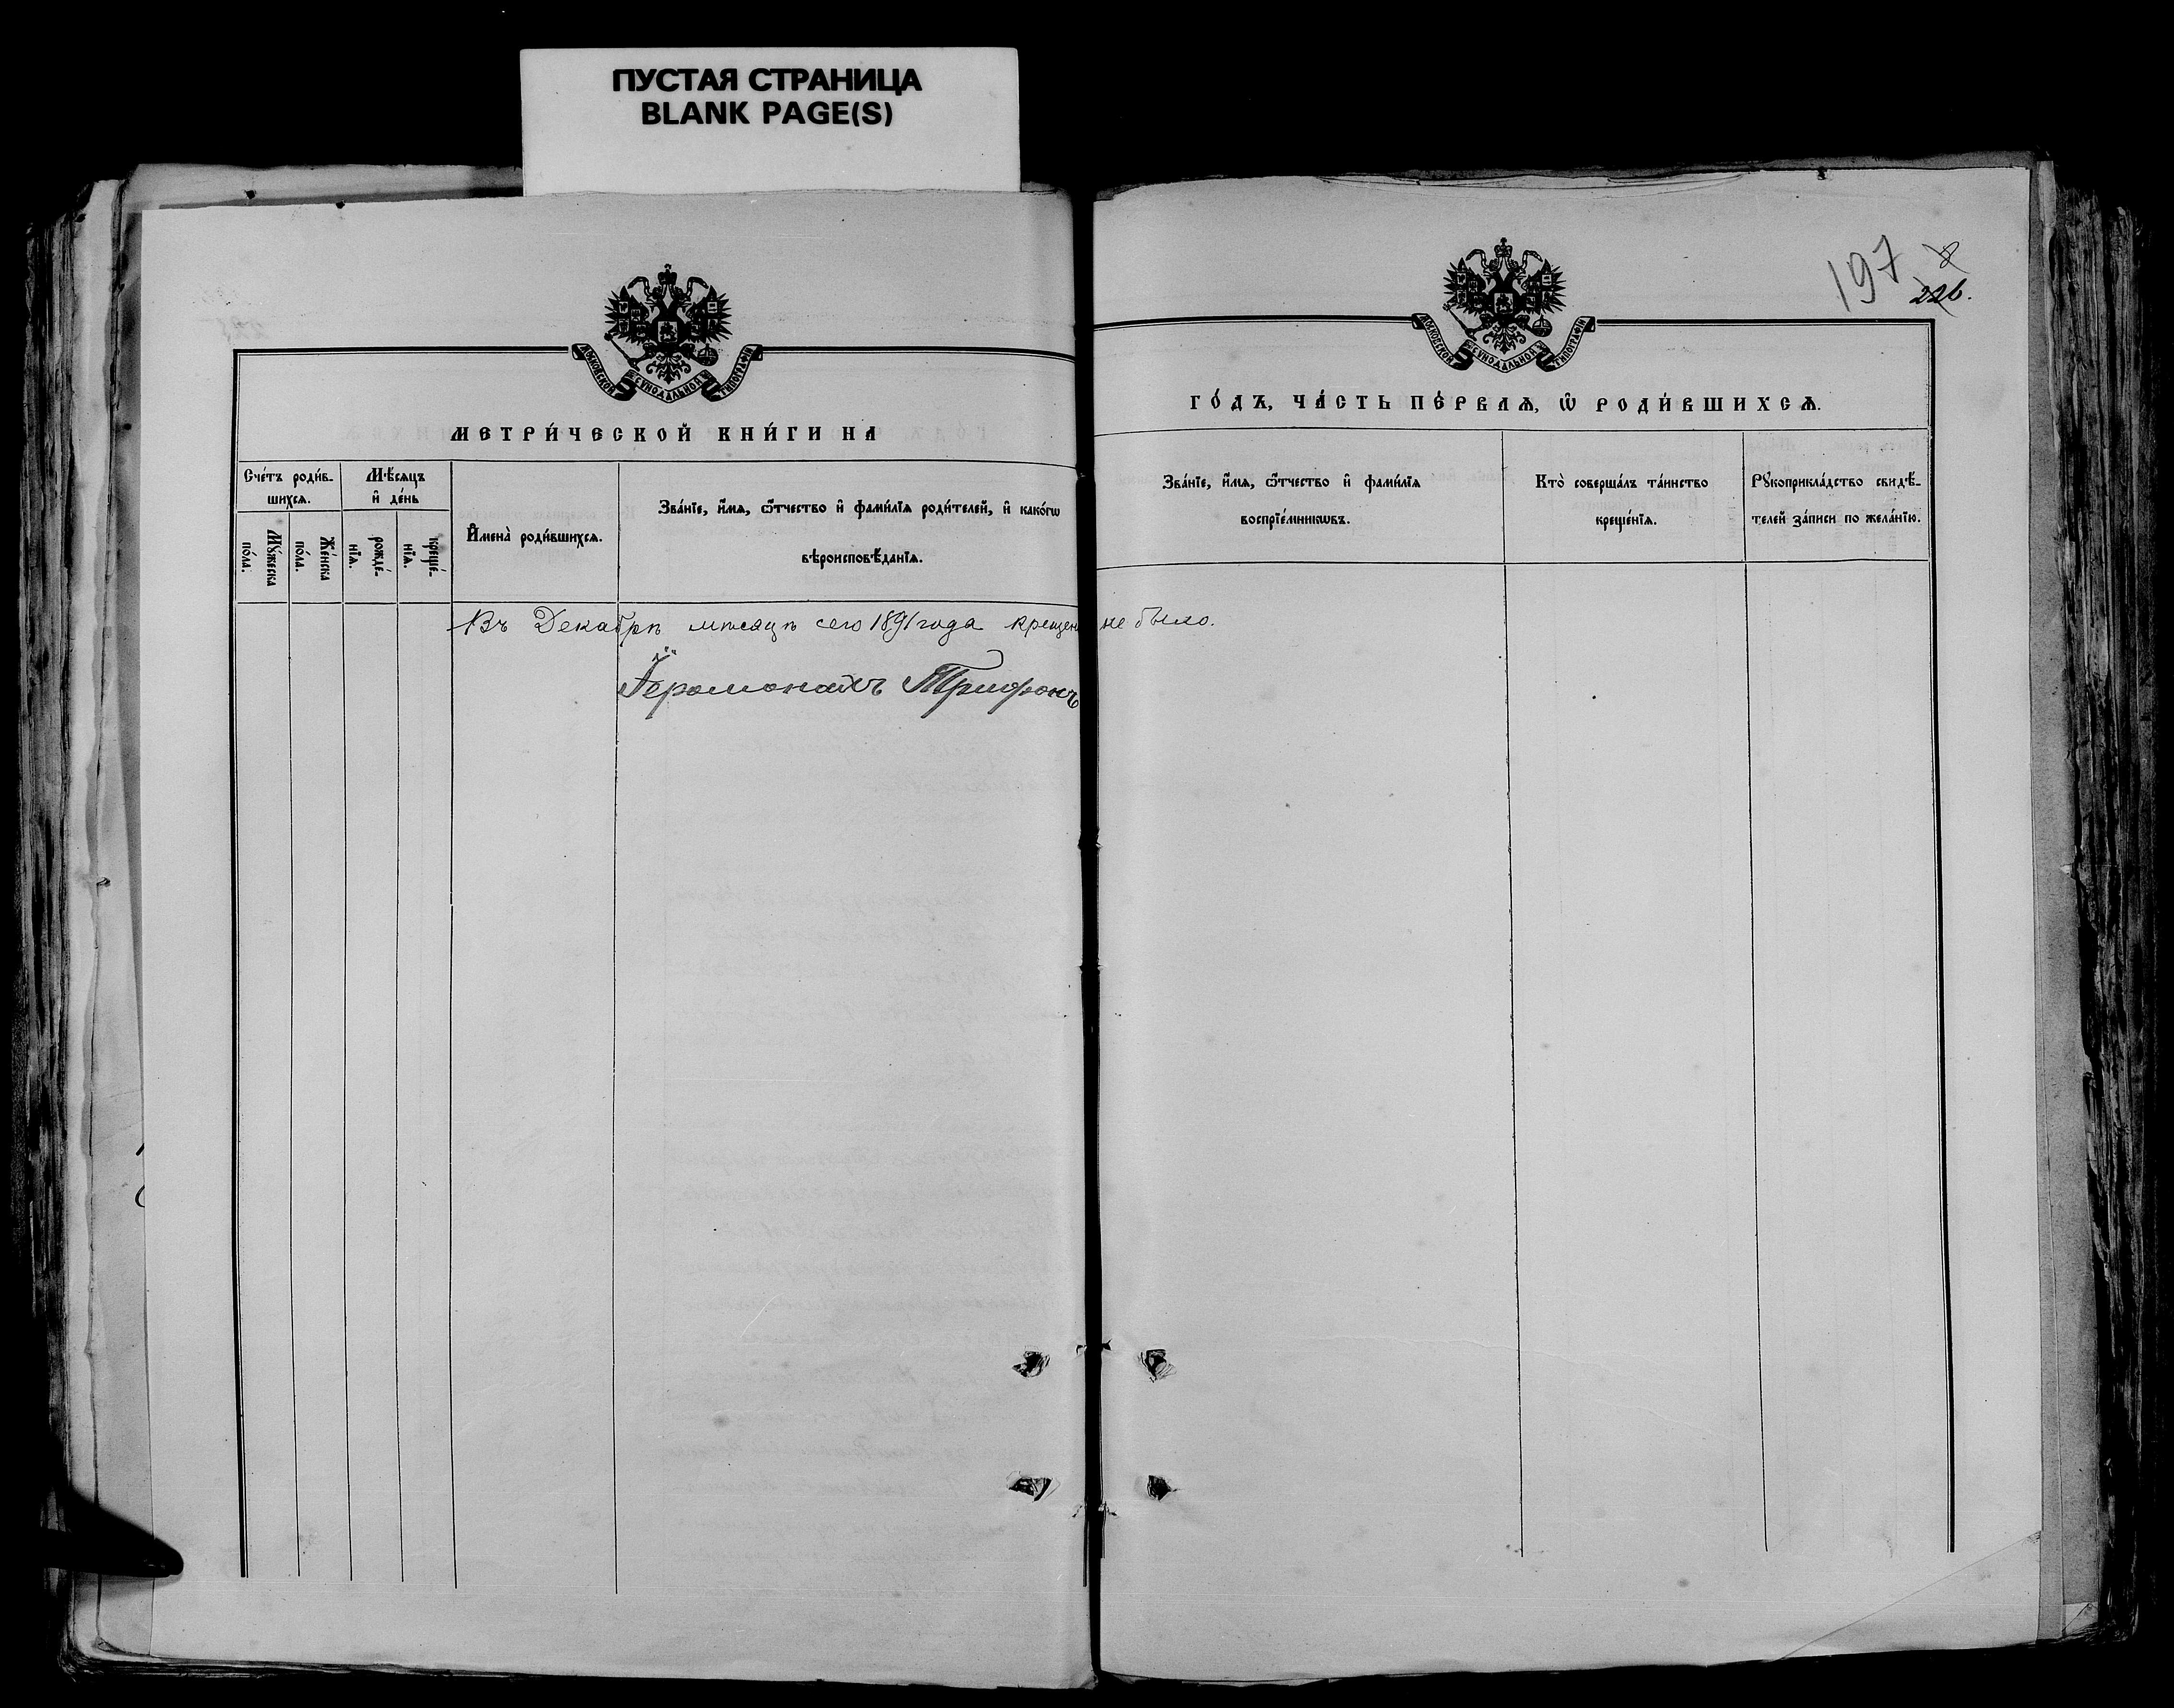 ПУСТАЯ СТРАНИЦА
BLANK PAGE(S)
197
226.
МОСКОВСКОЙ СѴНОДАЛЬНОЙ ТИПОГРАФІИ
МОСКОВСКОЙ СѴНОДАЛЬНОЙ ТИПОГРАФІИ
МЕТРИ́ЧЕСКОЙ КНИ́ГИ НА
ГО́ДЪ, ЧА́СТЬ ПЕ́РВАѦ, Ѡ҆ РОДИ́ВШИХСѦ.
Сче́тъ роди́в-
шихсѧ.
Мꙋ́жеска
по́ла.
Же́нска
по́ла.
Мѣ́сѧцъ
и҆ де́нь
рожде́-
нїѧ.
креще́-
нїѧ.
И҆мена̀ роди́вшихсѧ.
Зва́нїе, и҆́мѧ, ѻ҆́тчество и҆ фами́лїѧ роди́телей, и҆ како́гѡ
вѣроисповѣ́данїѧ.
Зва́нїе, и҆́мѧ, ѻ҆́тчество и҆ фами́лїѧ
воспрїе́мникѡвъ.
Кто̀ соверша́лъ та́инство
креще́нїѧ.
Рꙋкоприкла́дство свидѣ́-
телей за́писи по жела́нїю.
Въ Декабрѣ мѣсяцѣ сего 1891 года крещен не было.
Іеромонахъ Трифонъ